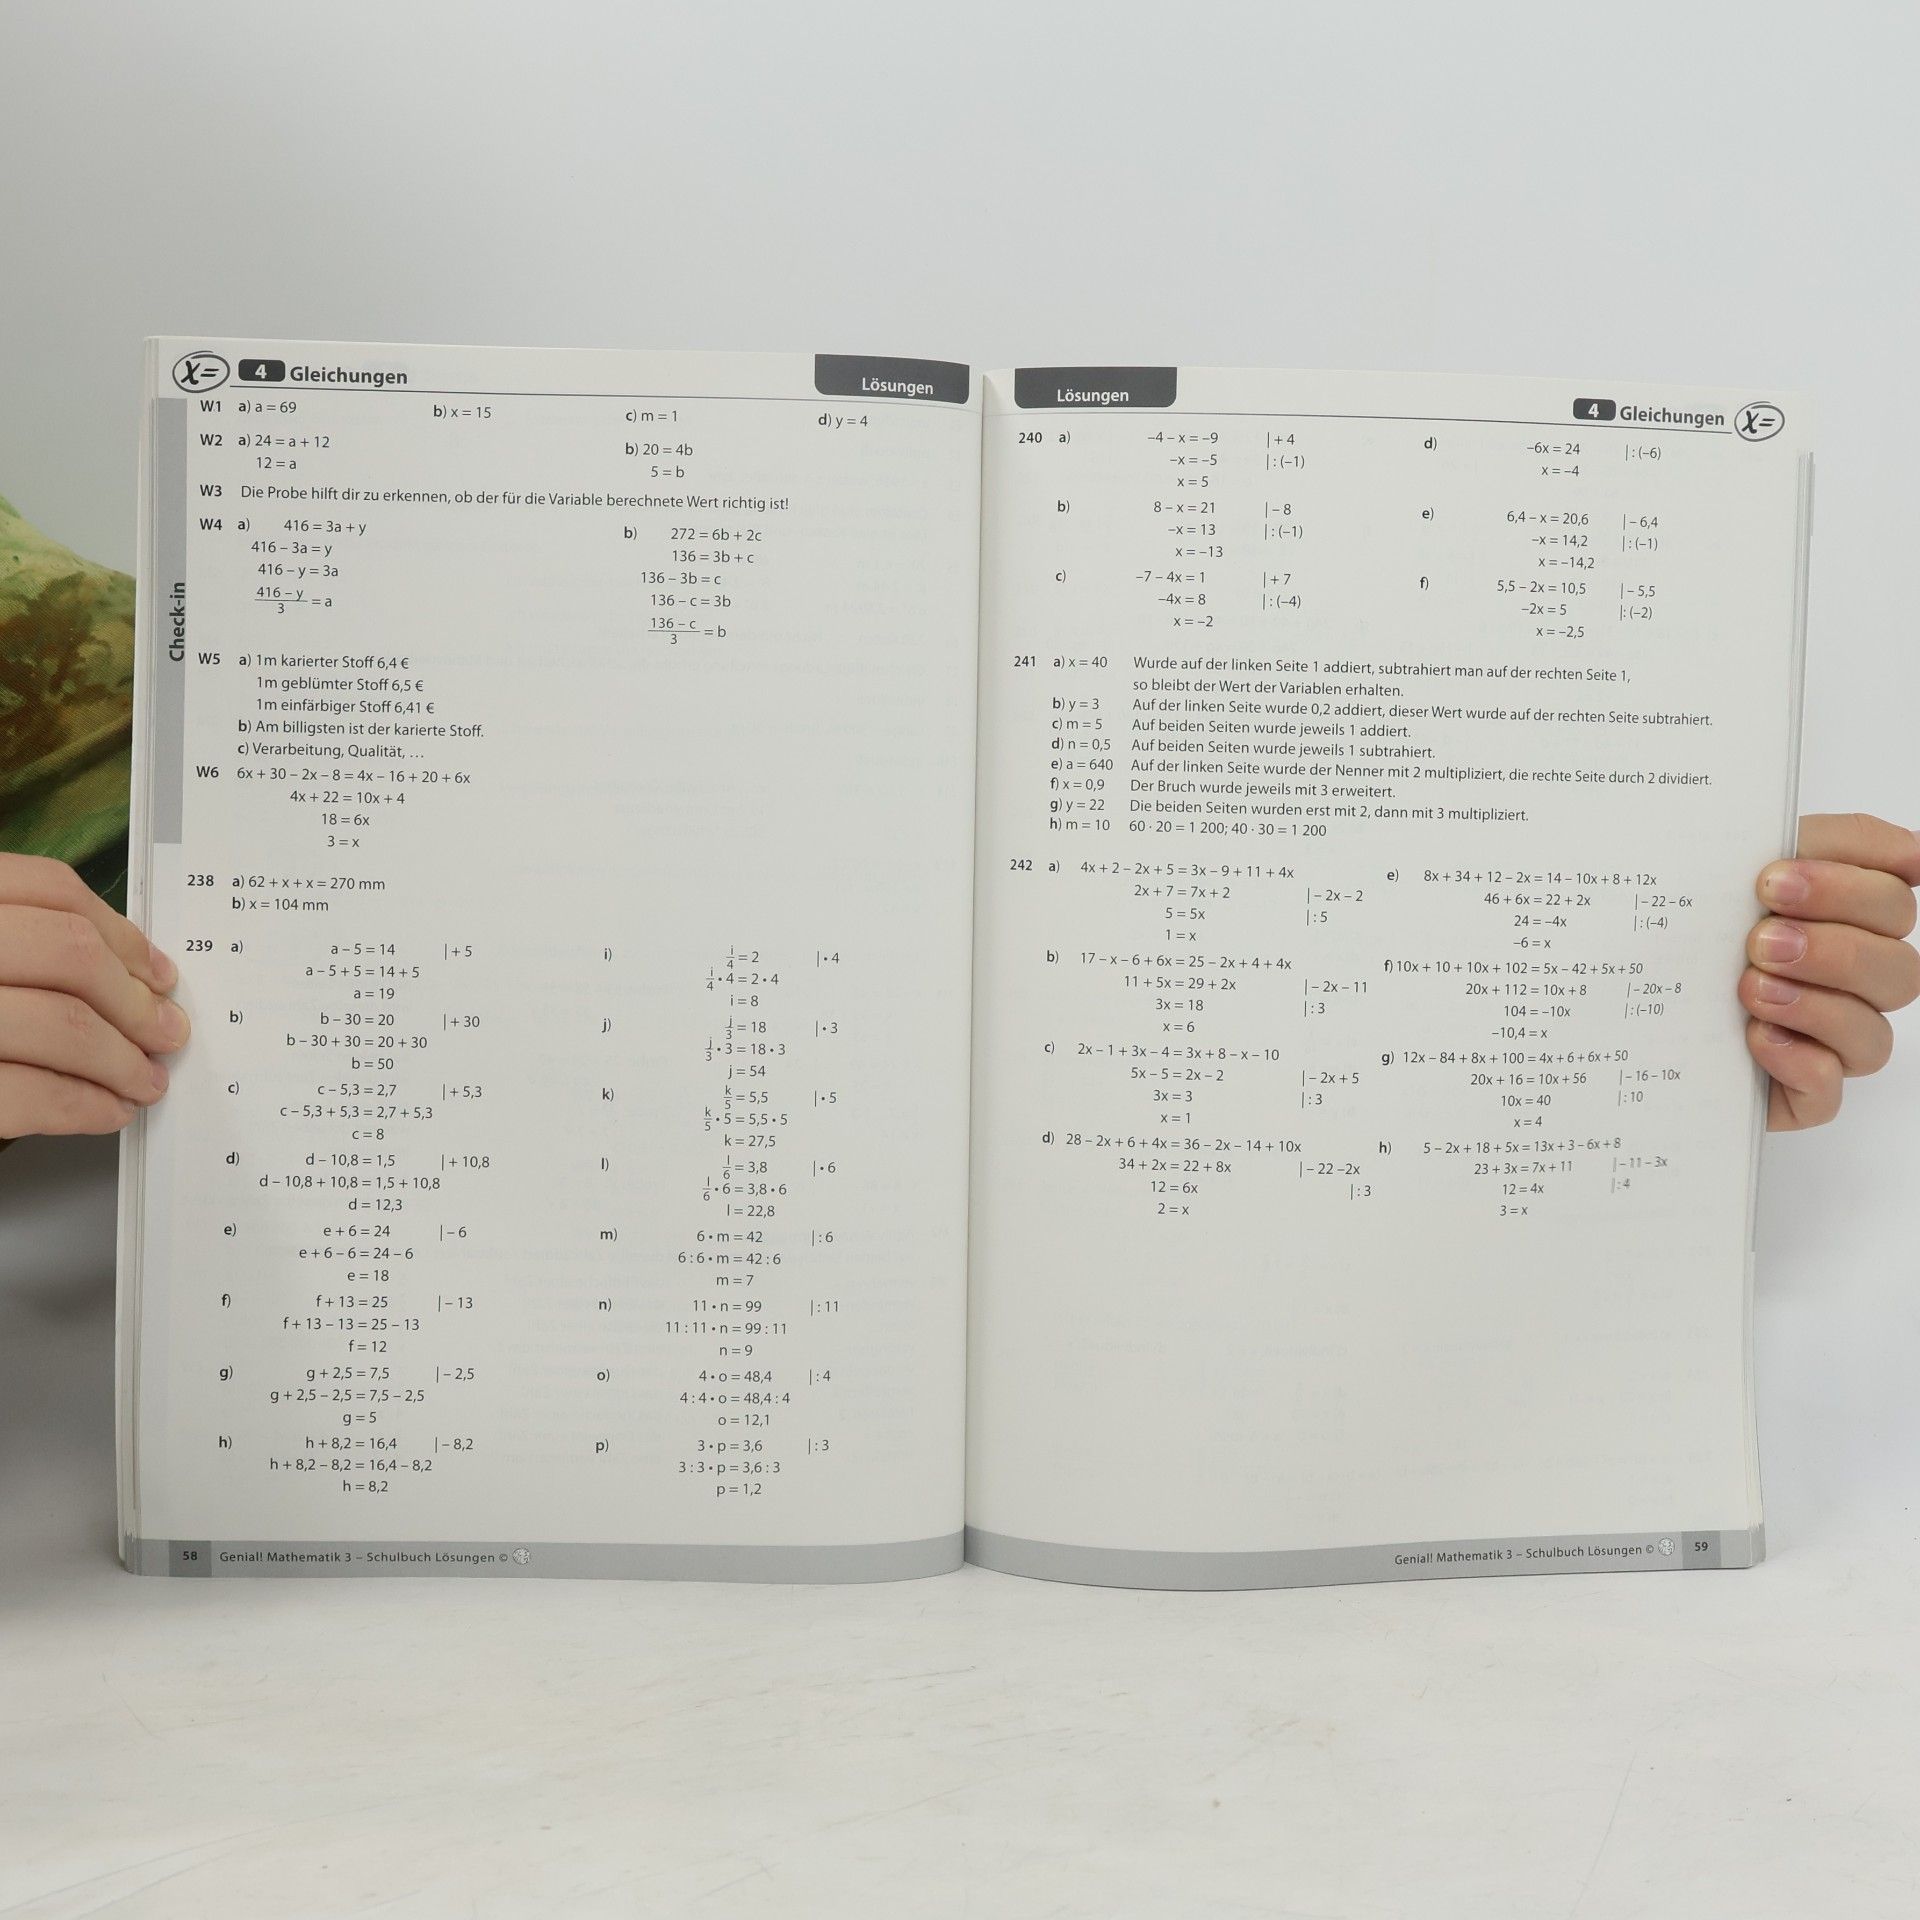 x= 4 Gleichungen Lösungen
W1 a) a = 69 b) x = 15 c) m = 1 d) y = 4
W2 a) 24 = a + 12 b) 20 = 4b
12 = a 5 = b
W3 Die Probe hilft dir zu erkennen, ob der für die Variable berechnete Wert richtig ist!
W4 a) 416 = 3a + y b) 272 = 6b + 2c
416 – 3a = y 136 = 3b + c
416 – y = 3a 136 – 3b = c
416 – y / 3 = a 136 – c = 3b
136 – c / 3 = b
Check-in
W5 a) 1m karierter Stoff 6,4 €
1m geblümter Stoff 6,5 €
1m einfärbiger Stoff 6,41 €
b) Am billigsten ist der karierte Stoff.
c) Verarbeitung, Qualität, …
W6 6x + 30 – 2x – 8 = 4x – 16 + 20 + 6x
4x + 22 = 10x + 4
18 = 6x
3 = x
238 a) 62 + x + x = 270 mm
b) x = 104 mm
239 a) a – 5 = 14 | + 5
a – 5 + 5 = 14 + 5
a = 19
b) b – 30 = 20 | + 30
b – 30 + 30 = 20 + 30
b = 50
c) c – 5,3 = 2,7 | + 5,3
c – 5,3 + 5,3 = 2,7 + 5,3
c = 8
d) d – 10,8 = 1,5 | + 10,8
d – 10,8 + 10,8 = 1,5 + 10,8
d = 12,3
e) e + 6 = 24 | – 6
e + 6 – 6 = 24 – 6
e = 18
f) f + 13 = 25 | – 13
f + 13 – 13 = 25 – 13
f = 12
g) g + 2,5 = 7,5 | – 2,5
g + 2,5 – 2,5 = 7,5 – 2,5
g = 5
h) h + 8,2 = 16,4 | – 8,2
h + 8,2 – 8,2 = 16,4 – 8,2
h = 8,2
i) i/4 = 2 | • 4
i/4 • 4 = 2 • 4
i = 8
j) j/3 = 18 | • 3
j/3 • 3 = 18 • 3
j = 54
k) k/5 = 5,5 | • 5
k/5 • 5 = 5,5 • 5
k = 27,5
l) l/6 = 3,8 | • 6
l/6 • 6 = 3,8 • 6
l = 22,8
m) 6 • m = 42 | : 6
6 : 6 • m = 42 : 6
m = 7
n) 11 • n = 99 | : 11
11 : 11 • n = 99 : 11
n = 9
o) 4 • o = 48,4 | : 4
4 : 4 • o = 48,4 : 4
o = 12,1
p) 3 • p = 3,6 | : 3
3 : 3 • p = 3,6 : 3
p = 1,2
58 Genial! Mathematik 3 – Schulbuch Lösungen ©
Lösungen 4 Gleichungen x=
240 a) –4 – x = –9 | + 4
–x = –5 | : (–1)
x = 5
b) 8 – x = 21 | – 8
–x = 13 | : (–1)
x = –13
c) –7 – 4x = 1 | + 7
–4x = 8 | : (–4)
x = –2
d) –6x = 24 | : (–6)
x = –4
e) 6,4 – x = 20,6 | – 6,4
–x = 14,2 | : (–1)
x = –14,2
f) 5,5 – 2x = 10,5 | – 5,5
–2x = 5 |: (–2)
x = –2,5
241 a) x = 40 Wurde auf der linken Seite 1 addiert, subtrahiert man auf der rechten Seite 1,
so bleibt der Wert der Variablen erhalten.
b) y = 3 Auf der linken Seite wurde 0,2 addiert, dieser Wert wurde auf der rechten Seite subtrahiert.
c) m = 5 Auf beiden Seiten wurde jeweils 1 addiert.
d) n = 0,5 Auf beiden Seiten wurde jeweils 1 subtrahiert.
e) a = 640 Auf der linken Seite wurde der Nenner mit 2 multipliziert, die rechte Seite durch 2 dividiert.
f) x = 0,9 Der Bruch wurde jeweils mit 3 erweitert.
g) y = 22 Die beiden Seiten wurden erst mit 2, dann mit 3 multipliziert.
h) m = 10 60 · 20 = 1 200; 40 · 30 = 1 200
242 a) 4x + 2 – 2x + 5 = 3x – 9 + 11 + 4x
2x + 7 = 7x + 2 | – 2x – 2
5 = 5x | : 5
1 = x
b) 17 – x – 6 + 6x = 25 – 2x + 4 + 4x
11 + 5x = 29 + 2x | – 2x – 11
3x = 18 | : 3
x = 6
c) 2x – 1 + 3x – 4 = 3x + 8 – x – 10
5x – 5 = 2x – 2 | – 2x + 5
3x = 3 | : 3
x = 1
d) 28 – 2x + 6 + 4x = 36 – 2x – 14 + 10x
34 + 2x = 22 + 8x | – 22 –2x
12 = 6x | : 3
2 = x
e) 8x + 34 + 12 – 2x = 14 – 10x + 8 + 12x
46 + 6x = 22 + 2x | – 22 – 6x
24 = –4x | : (–4)
–6 = x
f) 10x + 10 + 10x + 102 = 5x – 42 + 5x + 50
20x + 112 = 10x + 8 | – 20x – 8
104 = –10x | : (–10)
–10,4 = x
g) 12x – 84 + 8x + 100 = 4x + 6 + 6x + 50
20x + 16 = 10x + 56 | – 16 – 10x
10x = 40 | : 10
x = 4
h) 5 – 2x + 18 + 5x = 13x + 3 – 6x + 8
23 + 3x = 7x + 11 | – 11 – 3x
12 = 4x | : 4
3 = x
Genial! Mathematik 3 – Schulbuch Lösungen © 59